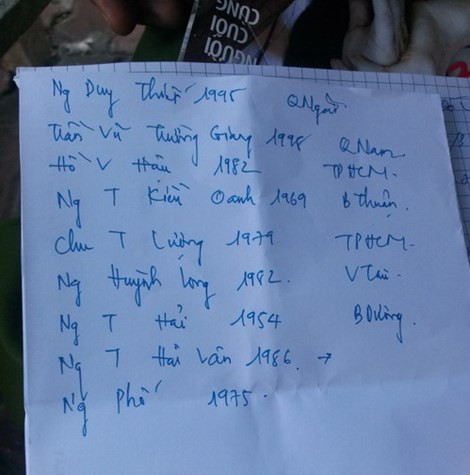 NGƯỜI
CUỐI
CÙNG
Ng Duy Thuật 1995 QNgãi
Trần Vũ Trường Giang 1998 QNam
Hồ V Hậu 1982 TPHCM.
Ng T Kiều Oanh 1969 BThuận.
Chu T Lượng 1979 TPHCM.
Ng Huỳnh Long 1982. VTàu.
Ng T Hải 1954 BDương.
Ng T Hải Vân 1986. →
Ng Phố 1975.